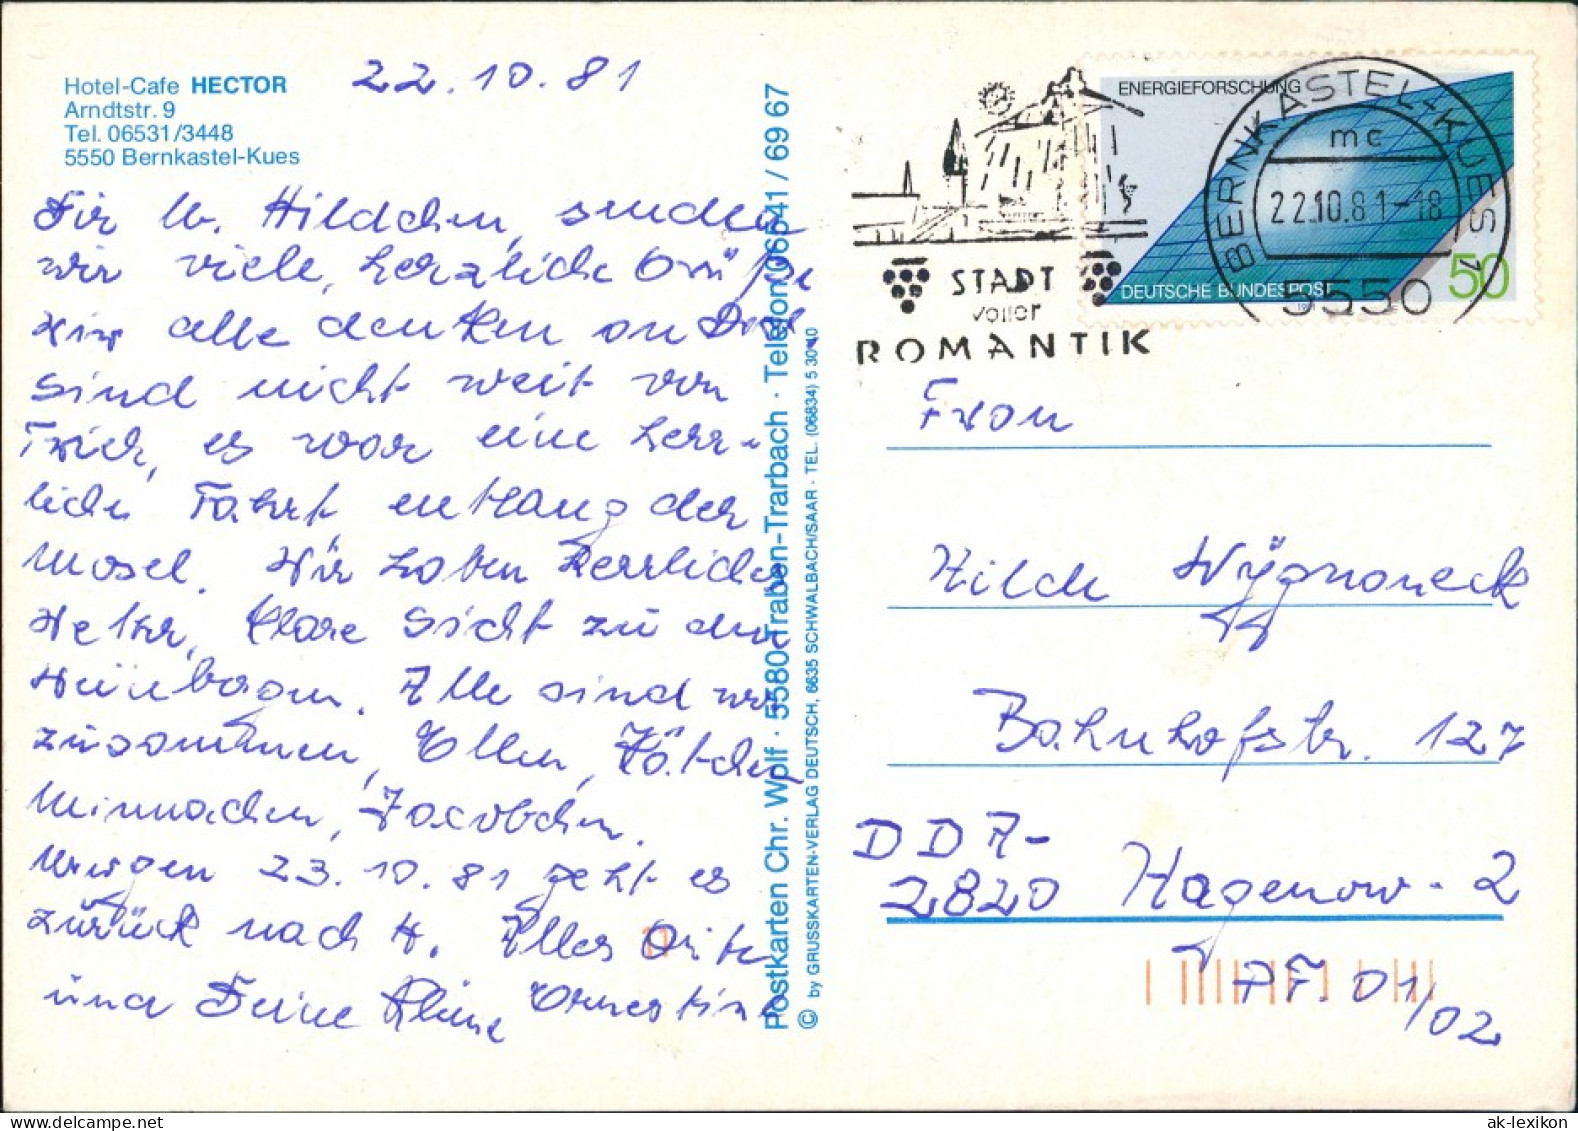 Hotel-Cafe HECTOR
Arndtstr. 9
Tel. 06531/3448
5550 Bernkastel-Kues
22.10.81
Dir lb. Hildchen, senden
wir viele, herzliche Grüße
Wir alle denken an Dich.
Sind nicht weit von
Trier, es war eine herr-
liche Fahrt entlang der
Mosel. Wir haben herrliches
Wetter, klare Sicht zu den
Weinbergen. Alle sind wir
zusammen, Ellen, Kätchen
Minnachen, Jacobchen.
Morgen 23.10.81 geht es
zurück nach H. Alles Gute
und Deine kleine Ernestine
Postkarten Chr. Wolf · 5580 Traben-Trarbach · Telefon 06541 / 69 67
© by GRUSSKARTEN-VERLAG DEUTSCH, 6635 SCHWALBACH/SAAR - TEL. (06834) 5 30 40
STADT
voller
ROMANTIK
ENERGIEFORSCHUNG
DEUTSCHE BUNDESPOST
50
BERNKASTEL-KUES 1
mc
22.10.81-18
5550
Frau
Hilde
Bahnhofstr. 127
DDR-
2820 Hagenow-2
PF. 01/02
11
ak-lexikon